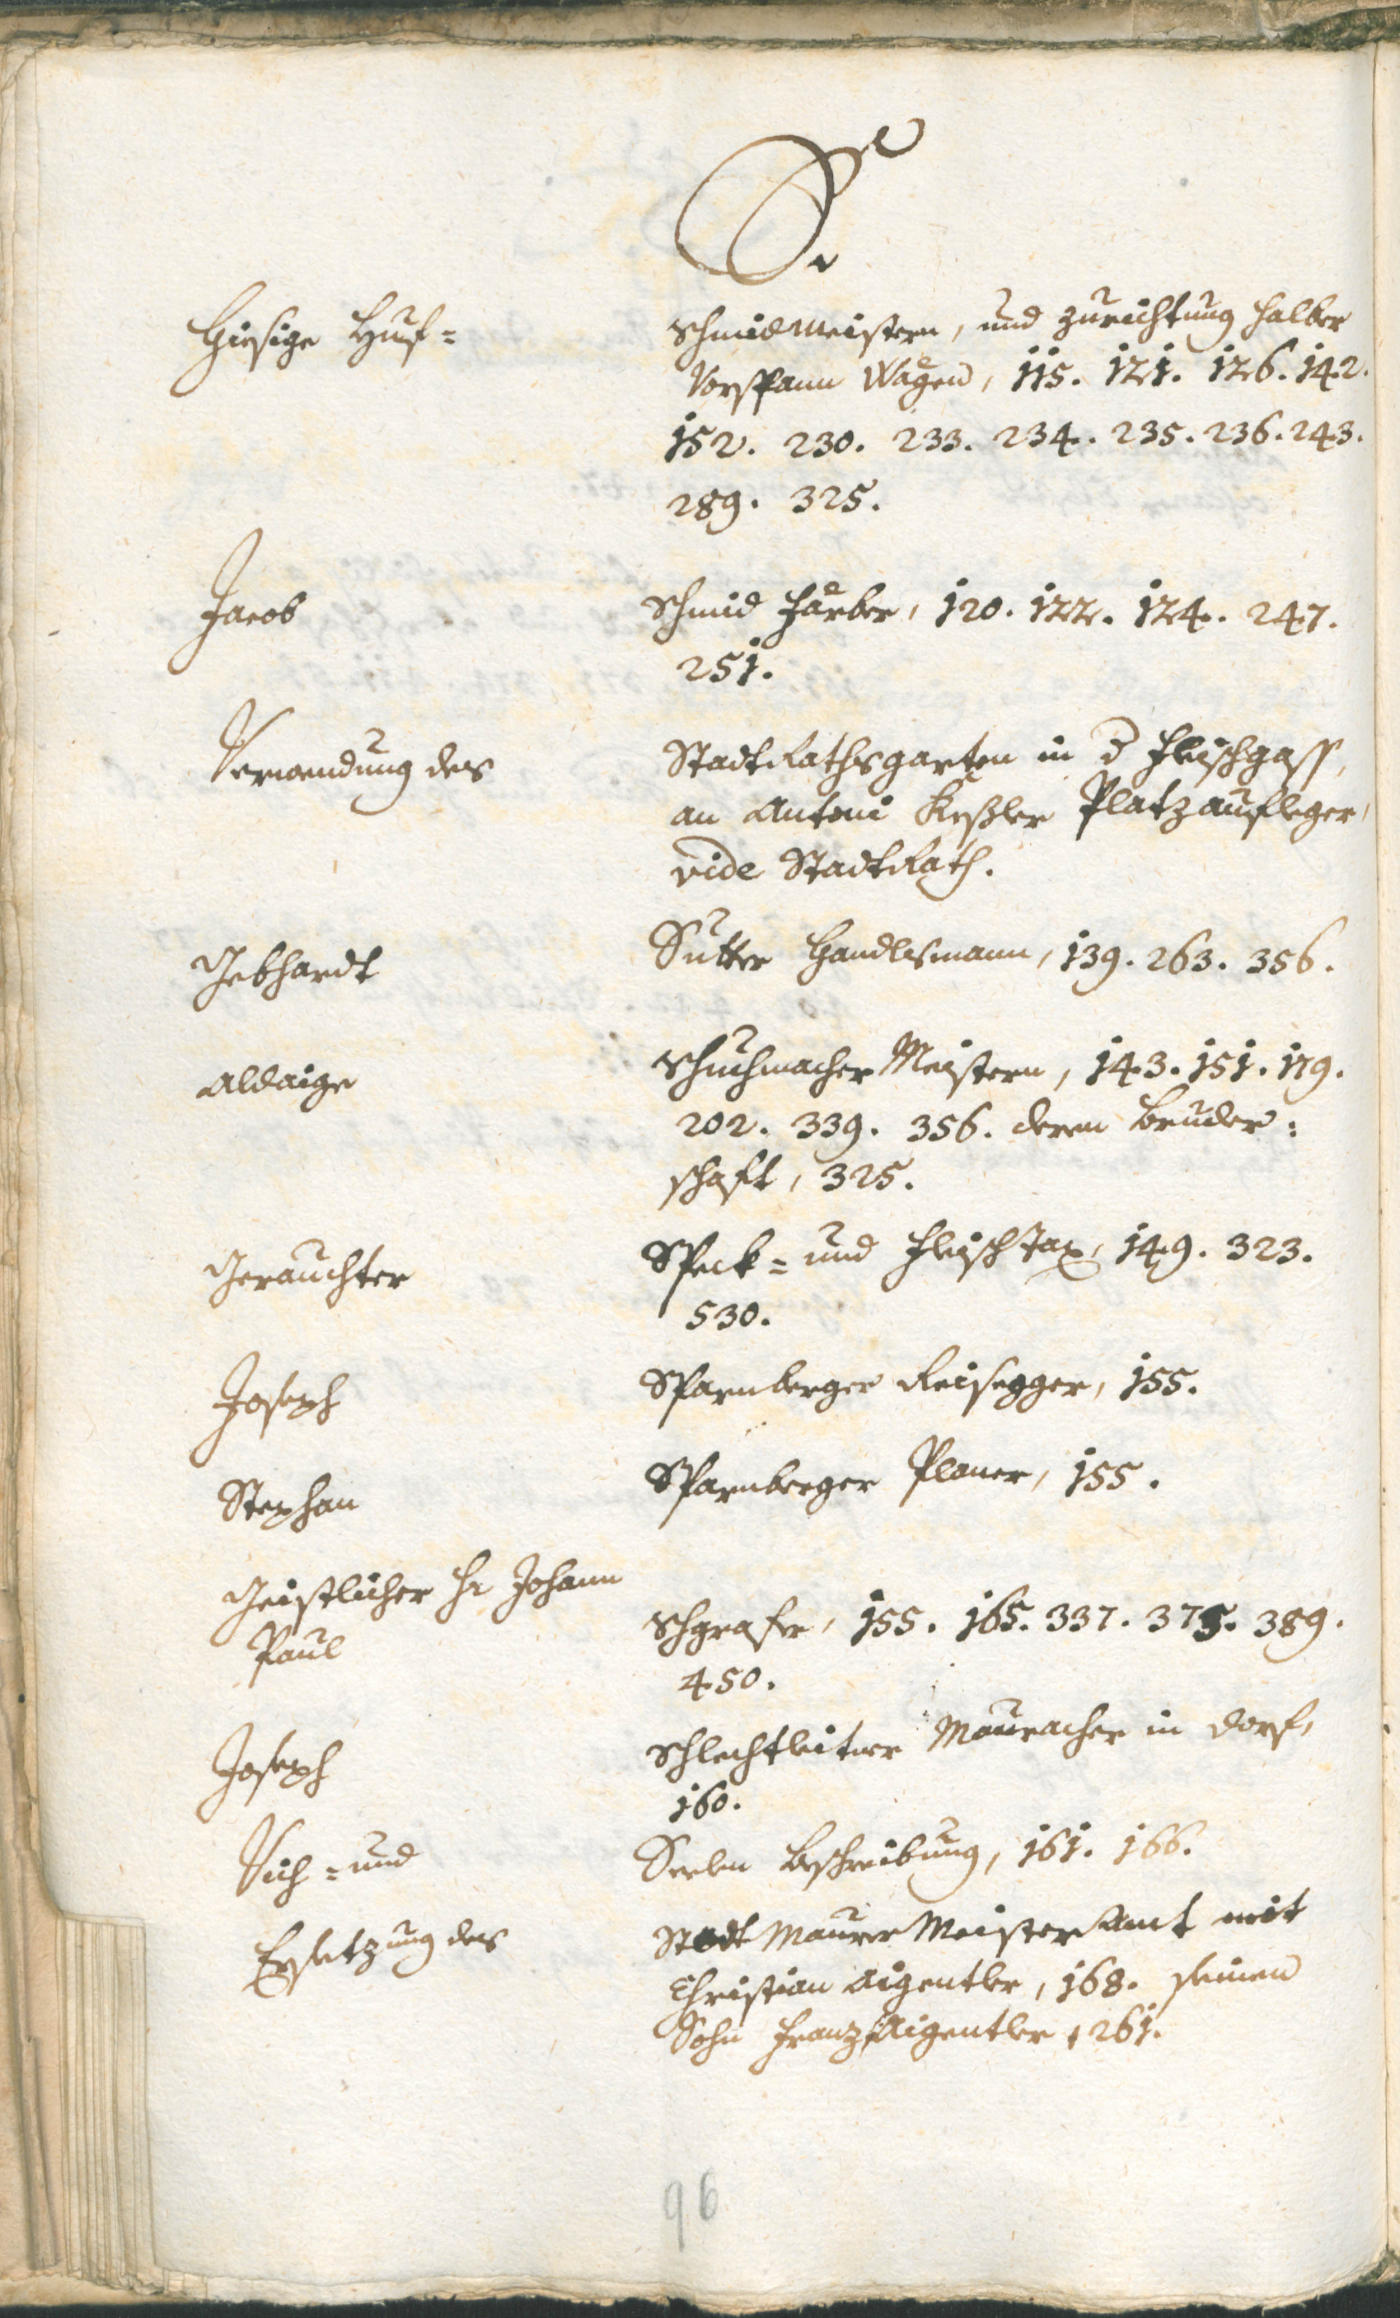 S
Hiesige Huf=
Schmidmeistern, und Zurichtung halber
Vorspann Wägen, 115. 121. 126. 142.
152. 230. 233. 234. 235. 236. 243.
289. 325.
Jacob
Schmid Färber, 120. 122. 124. 247.
251.
Verwendung des
StadtRathsgarten in d Fleischgass,
an Antoni Keßler Platzaufleger,
vide StadtRath.
Gebhardt
Sutter Handlsmann, 139. 263. 356.
Aldaige
Schuhmacher Meistern, 143. 151. 179.
202. 339. 356. deren Bruder:
schaft, 325.
Gerauchter
Speck= und Fleisch Tax, 149. 323.
530.
Joseph
Sparnberger Reisegger, 155.
Stephan
Sparnberger Planer, 155.
Geistlicher Hr Johann
Paul
Schgrafer, 155. 165. 337. 375. 389.
450.
Joseph
Schlechtleitner Mauracher in Dorf,
160.
Vich= und
Seelen Beschreibung, 161. 166.
Ersetzung des
Stadt Maurer Meister Amt mit
Christian Aigentler, 168. seinen
Sohn Franz Aigentler, 261.
96